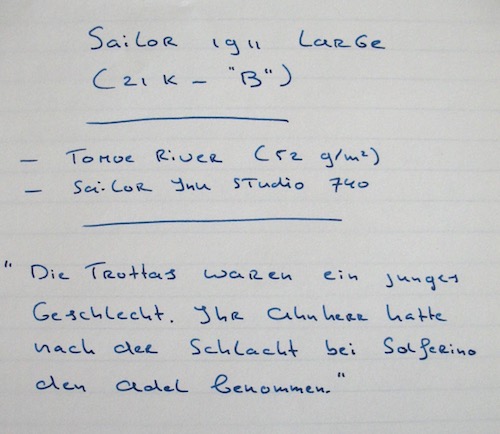 Sailor 1911 Large
(21 K - "B")
- Tomoe River (52 g/m²)
- Sailor Ink Studio 740
"Die Trottas waren ein junges
Geschlecht. Ihr Ahnherr hatte
nach der Schlacht bei Solferino
den Adel benommen."